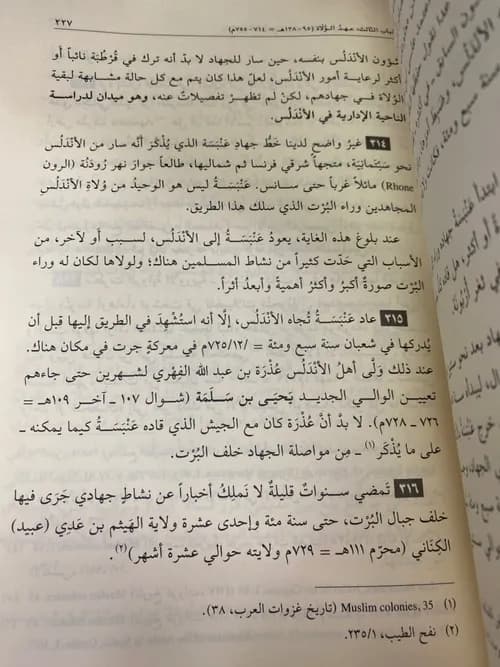 الباب الثالث: عهدُ الوُلاة (٩٥-١٣٨هـ = ٧١٤-٧٥٥م)
٢٢٧
شؤون الأنْدَلُس بنفسه، حين سار للجهاد لا بدّ أنه ترك في قُرْطُبَة نائباً أو
أكثر لرعاية أمور الأندلس، لعلّ هذا كان يتم مع كل حالة مشابهة لبقية
الوُلاة في جهادهم، لكنْ لم تظهرْ تفصيلاتٌ عنه، وهو ميدان لدراسة
الناحية الإدارية في الأنْدَلُس.
٣١٤ غيرُ واضح لدينا خَطُّ جهادِ عَنْبَسَة الذي يُذْكَرُ أنَّه سار من الأنْدَلُس
نحو سَبْتمانِيَة، متجهاً شرقي فرنسا ثم شماليها، طالعاً جوازَ نهر رُودَنُة (الرون
Rhone) مائلاً غرباً حتى سانس. عَنْبَسَةُ ليس هو الوحيدُ من وُلاةِ الأنْدَلُس
المجاهدين وراء البُرْت الذي سلك هذا الطريق.
عند بلوغ هذه الغاية، يعودُ عَنْبَسَةُ إلى الأنْدَلُس، لسبب أو لآخر، من
الأسباب التي حَدّت كثيراً من نشاط المسلمين هناك؛ ولولاها لكان له وراء
البُرْت صورةٌ أكبرُ وأكثرُ أهميةً وأبعدُ أثراً.
٣١٥ عاد عَنْبَسَةُ تُجاه الأنْدَلُس، إلّا أنه استُشْهِدَ في الطريق إليها قبل أن
يُدركها في شعبان سنة سبع ومئة = /٧٢٥/١٢م في معركةٍ جرت في مكان هناك.
عند ذلك وَلّى أهلُ الأنْدَلُس عُذْرَة بن عبد الله الفِهْري لشهرين حتى جاءهم
تعيين الوالي الجديد يَحيَى بن سَلَمَة (شوال ١٠٧ - آخر ١٠٩هـ =
٧٢٦ - ٧٢٨م). لا بدَّ أنَّ عُذْرَة كان مع الجيش الذي قاده عَنْبَسَةُ كيما يمكنه ـ
على ما يُذْكَر(١) ـ مِن مواصلة الجهاد خلف البُرْت.
٣١٦ تَمضي سنواتٌ قليلةٌ لا نَملِكُ أخباراً عن نشاطٍ جهادي جَرَى فيها
خلف جبال البُرْت، حتى سنة مئة وإحدى عشرة ولاية الهَيثم بن عَدِي (عبيد)
الكِنَاني (محرّم ١١١هـ = ٧٢٩م ولايته حوالي عشرة أشهر)(٢).
(١) Muslim colonies, 35 (تاريخ غزوات العرب، ٣٨).
(٢) نفح الطيب، ٢٣٥/١.